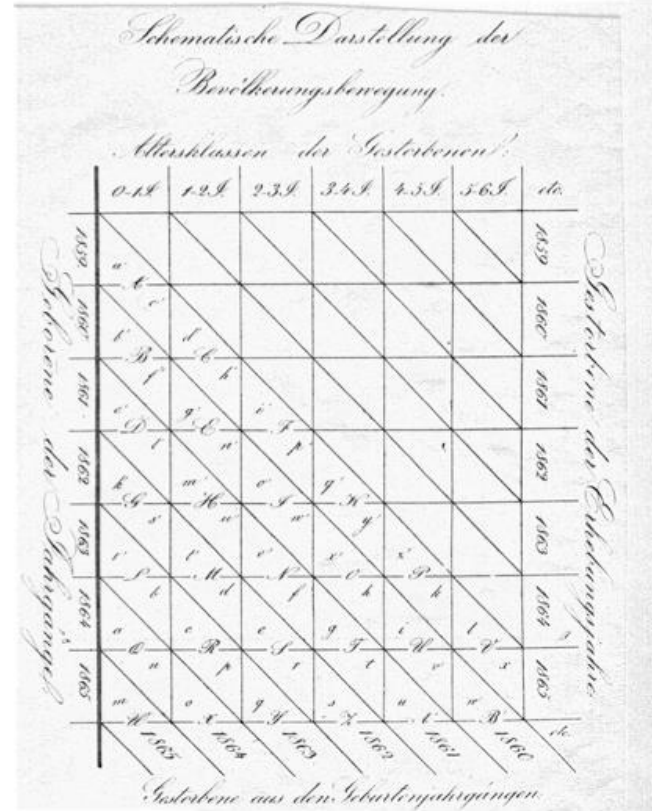 Schematische Darstellung der
Bevölkerungsbewegung.
Altersklassen der Gestorbenen:
0-1 J. 1-2 J. 2-3 J. 3-4 J. 4-5 J. 5-6 J. etc.
Geborene der Jahrgänge
1859 1860 1861 1862 1863 1864 1865
Gestorbene der Erhebungsjahre
1859 1860 1861 1862 1863 1864 1865 etc.
a A c
b B d C
f h
e D g E i F
l n p
k G m H o I q K
s u w y
r L t M v N x O z P
b d f h k
a Q c R e S g T i U l V
n p r t v x
m W o X q Y s Z u w
1865 1864 1863 1862 1861 1860
Gestorbene aus den Geburtenjahrgängen